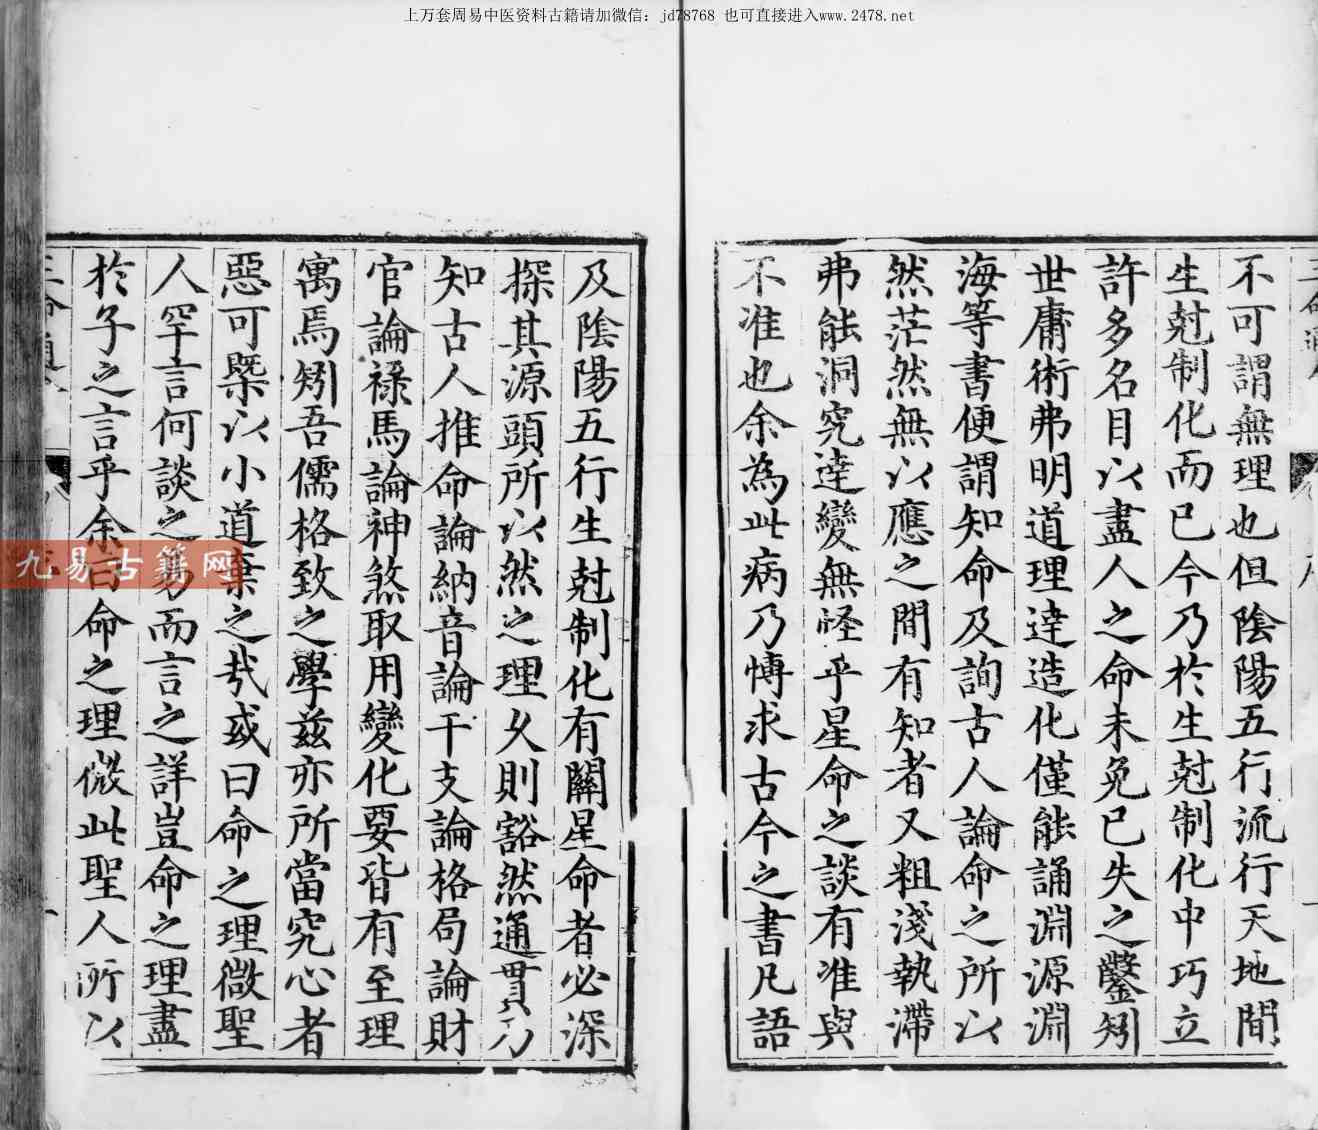 上万套周易中医资料古籍请加微信：jd78768 也可直接进入www.2478.net
不可謂無理也但陰陽五行流行天地間
生尅制化而已今乃於生尅制化中巧立
許多名目以盡人之命未免已失之鑿矧
世庸術弗明道理逹造化僅能誦淵源淵
海等書便謂知命及詢古人論命之所以
然茫然無以應之間有知者又粗淺執滯
弗能洞究逹變無怪乎星命之談有准與
不准也余為此病乃愽求古今之書凡語
及陰陽五行生尅制化有關星命者必深
探其源頭所以然之理久則豁然通貫乃
知古人推命論納音論干支論格局論財
官論祿馬論神煞取用變化要皆有至理
寓焉矧吾儒格致之學兹亦所當究心者
惡可槩以小道棄之㢤或曰命之理微聖
人罕言何談之易而言之詳豈命之理盡
於子之言乎余曰命之理微此聖人所以
九易古籍网